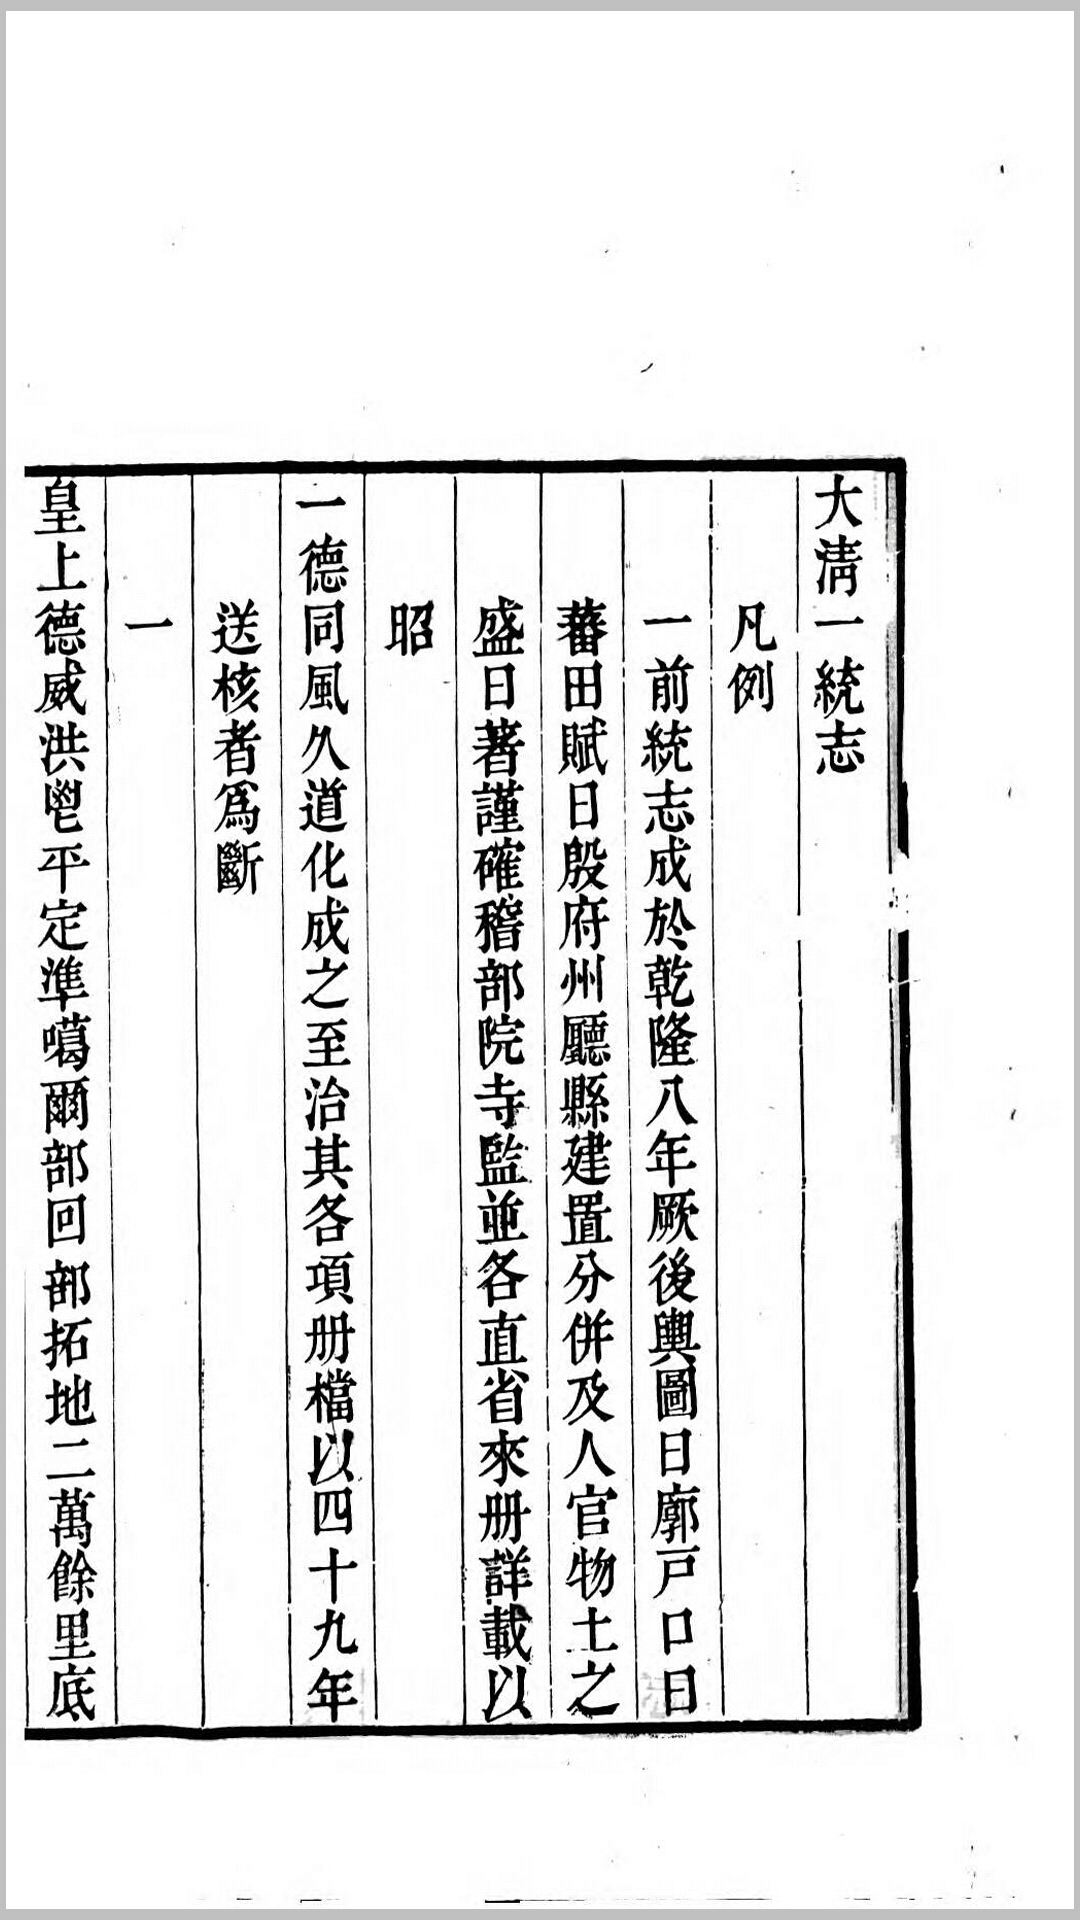 大淸一統志
凡例
一前統志成於乾隆八年厥後輿圖日廓戸口日
蕃田賦日殷府州廳縣建置分併及人官物土之
盛日著謹確稽部院寺監並各直省來册詳載以
昭
一德同風久道化成之至治其各項册檔以四十九年
送核者爲斷
一
皇上德威洪鬯平定準噶爾部回部拓地二萬餘里底